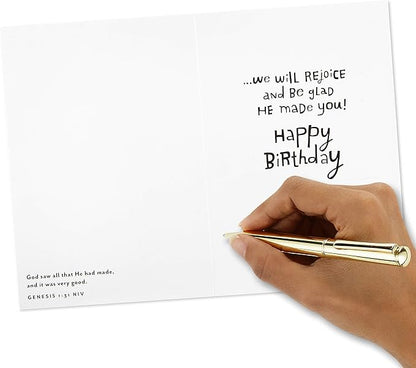 ...we will Rejoice
and Be glad
He made you!
Happy
Birthday
God saw all that He had made,
and it was very good.
GENESIS 1:31 NIV